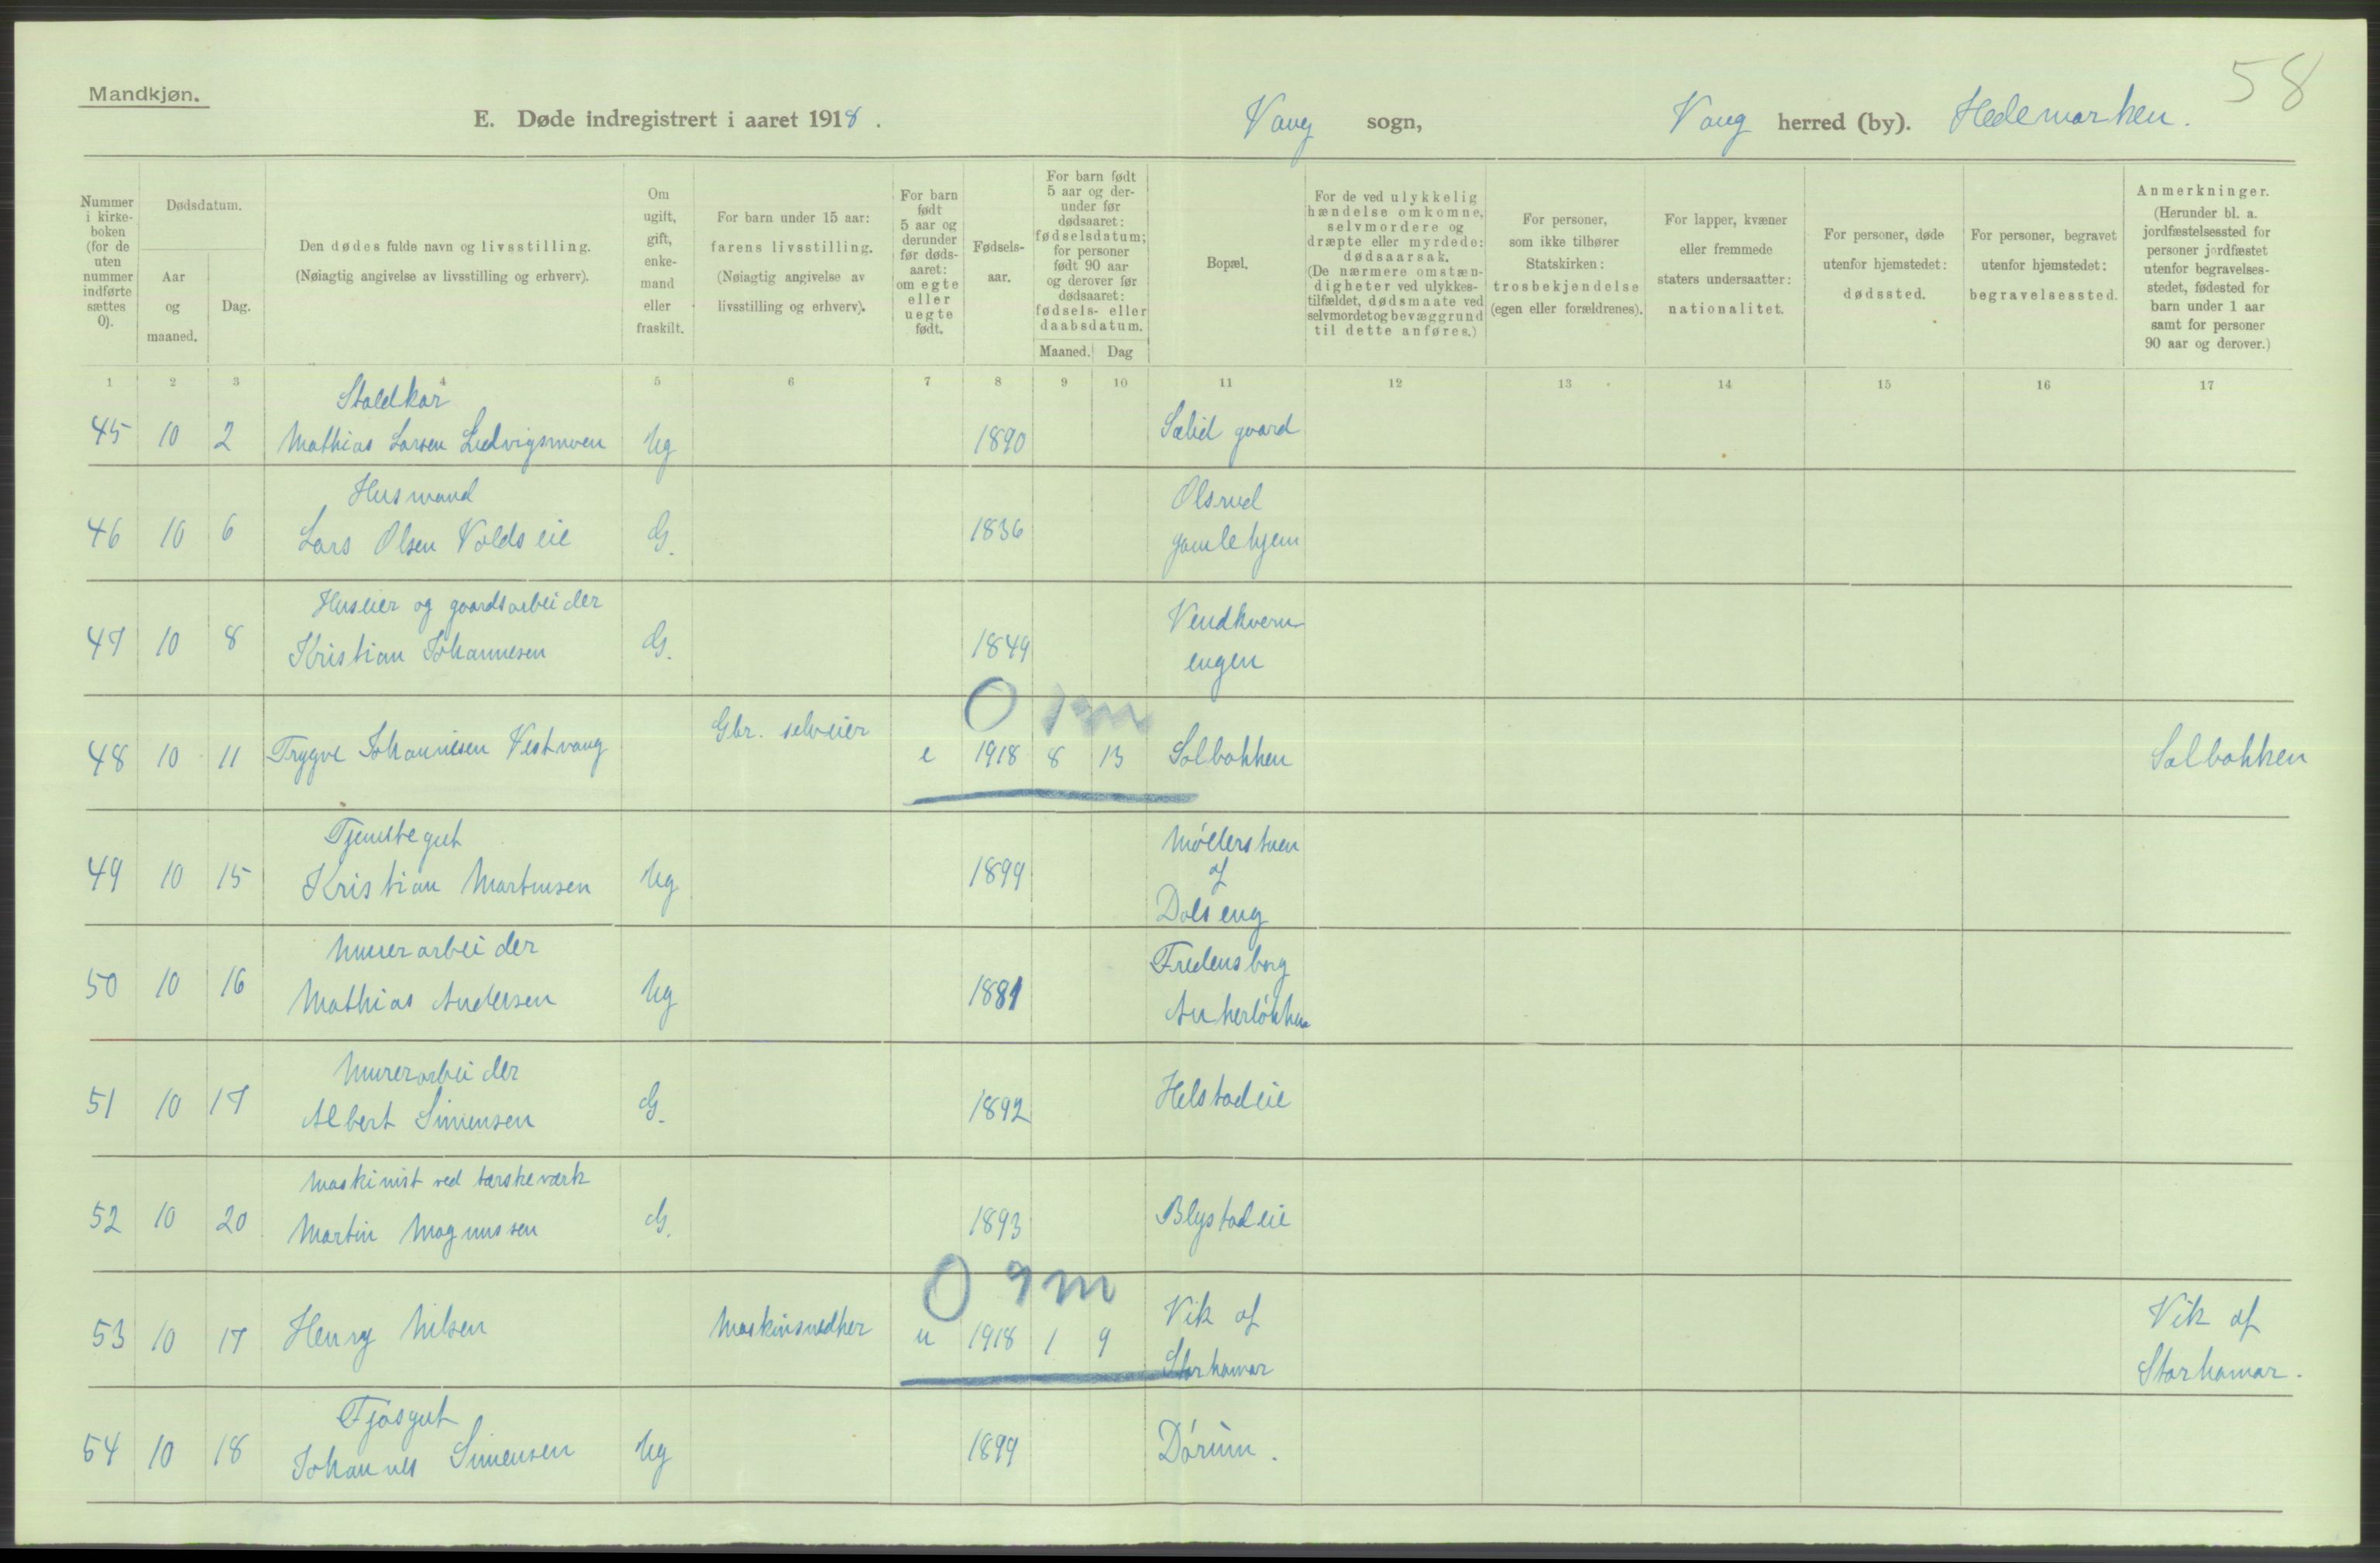 58
Mandkjøn.
E. Døde indregistrert i aaret 1918.
Vang sogn, Vang herred (by). Hedemarken.
Nummer i kirke-boken (for de uten nummer indførte sættes 0).
Dødsdatum.
Aar og maaned.
Dag.
Den dødes fulde navn og livsstilling.
(Nøiagtig angivelse av livsstilling og erhverv).
Om ugift, gift, enke-mand eller fraskilt.
For barn under 15 aar: farens livsstilling.
(Nøiagtig angivelse av livsstilling og erhverv).
For barn født 5 aar og derunder før døds-aaret: om egte eller uegte født.
Fødsels-aar.
For barn født 5 aar og der-under før dødsaaret: fødselsdatum; for personer født 90 aar og derover før dødsaaret: fødsels- eller daabsdatum.
Maaned. Dag
Bopæl.
For de ved ulykkelig hændelse omkomne, selvmordere og dræpte eller myrdede: dødsaarsak.
(De nærmere omstæn-digheter ved ulykkes-tilfældet, dødsmaate ved selvmordet og bevæggrund til dette anføres.)
For personer, som ikke tilhører Statskirken: trosbekjendelse (egen eller forældrenes).
For lapper, kvæner eller fremmede staters undersaatter: nationalitet.
For personer, døde utenfor hjemstedet: dødssted.
For personer, begravet utenfor hjemstedet: begravelsessted.
Anmerkninger.
(Herunder bl. a. jordfæstelsessted for personer jordfæstet utenfor begravelses-stedet, fødested for barn under 1 aar samt for personer 90 aar og derover.)
1 2 3 4 5 6 7 8 9 10 11 12 13 14 15 16 17
Staldkar
45 10 2 Mathias Larsen Ludvigsmoen Ug 1890 Sælid gaard
Husmand Olsrud
46 10 6 Lars Olsen Voldseie G. 1836 gamlehjem
Huseier og gaardsarbeider Vendkvern
47 10 8 Kristian Johannesen G. 1849 engen
0 1m
Gbr. selveier
48 10 11 Trygve Johannesen Vestvang e 1918 8 13 Solbakken Solbakken
Tjenstegut Møllerstuen
49 10 15 Kristian Martinsen Ug 1899 af
Dolseng
Murerarbeider Fredensborg
50 10 16 Mathias Andersen Ug 1881 Ankerløkken
Murerarbeider
51 10 17 Albert Simensen G. 1892 Helstadeie
Maskinist ved tærskeverk
52 10 20 Martin Magnussen G. 1893 Blystadeie
0 9m
Vik af Vik af
53 10 17 Henry Nilsen Maskinsnedker u 1918 1 9 Storhamar Storhamar.
Fjøsgut
54 10 18 Johannes Simensen Ug 1899 Dørum.